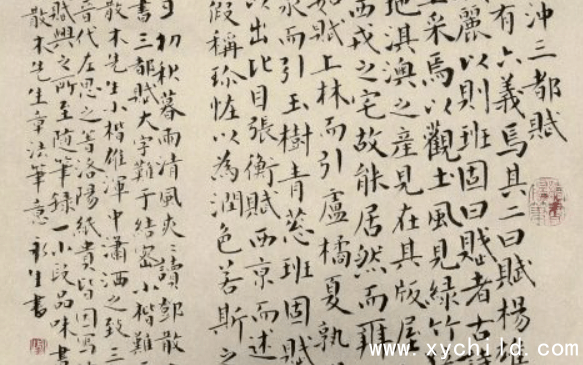 沖三都賦
有六義焉其二曰賦楊雄
麗以則班固曰賦者古詩
采焉以觀土風見綠竹
地淇澳之產見在其版屋
西戎之宅故能居然而
如賦上林而引盧橘夏孰
泉而引玉樹青蔥班固賦
以出比目張衡賦西京而述
假稱珍怪以為潤色若斯之
初秋暮雨清風爽〻讀鄧散
書三都賦大字難于結密小楷難
散木先生小楷雄渾中瀟洒之致三
晉代左思之著洛陽紙貴皆因寫
賦興之所至隨筆錄一小段品味書
散木先生章法筆意 書
www.xychild.com